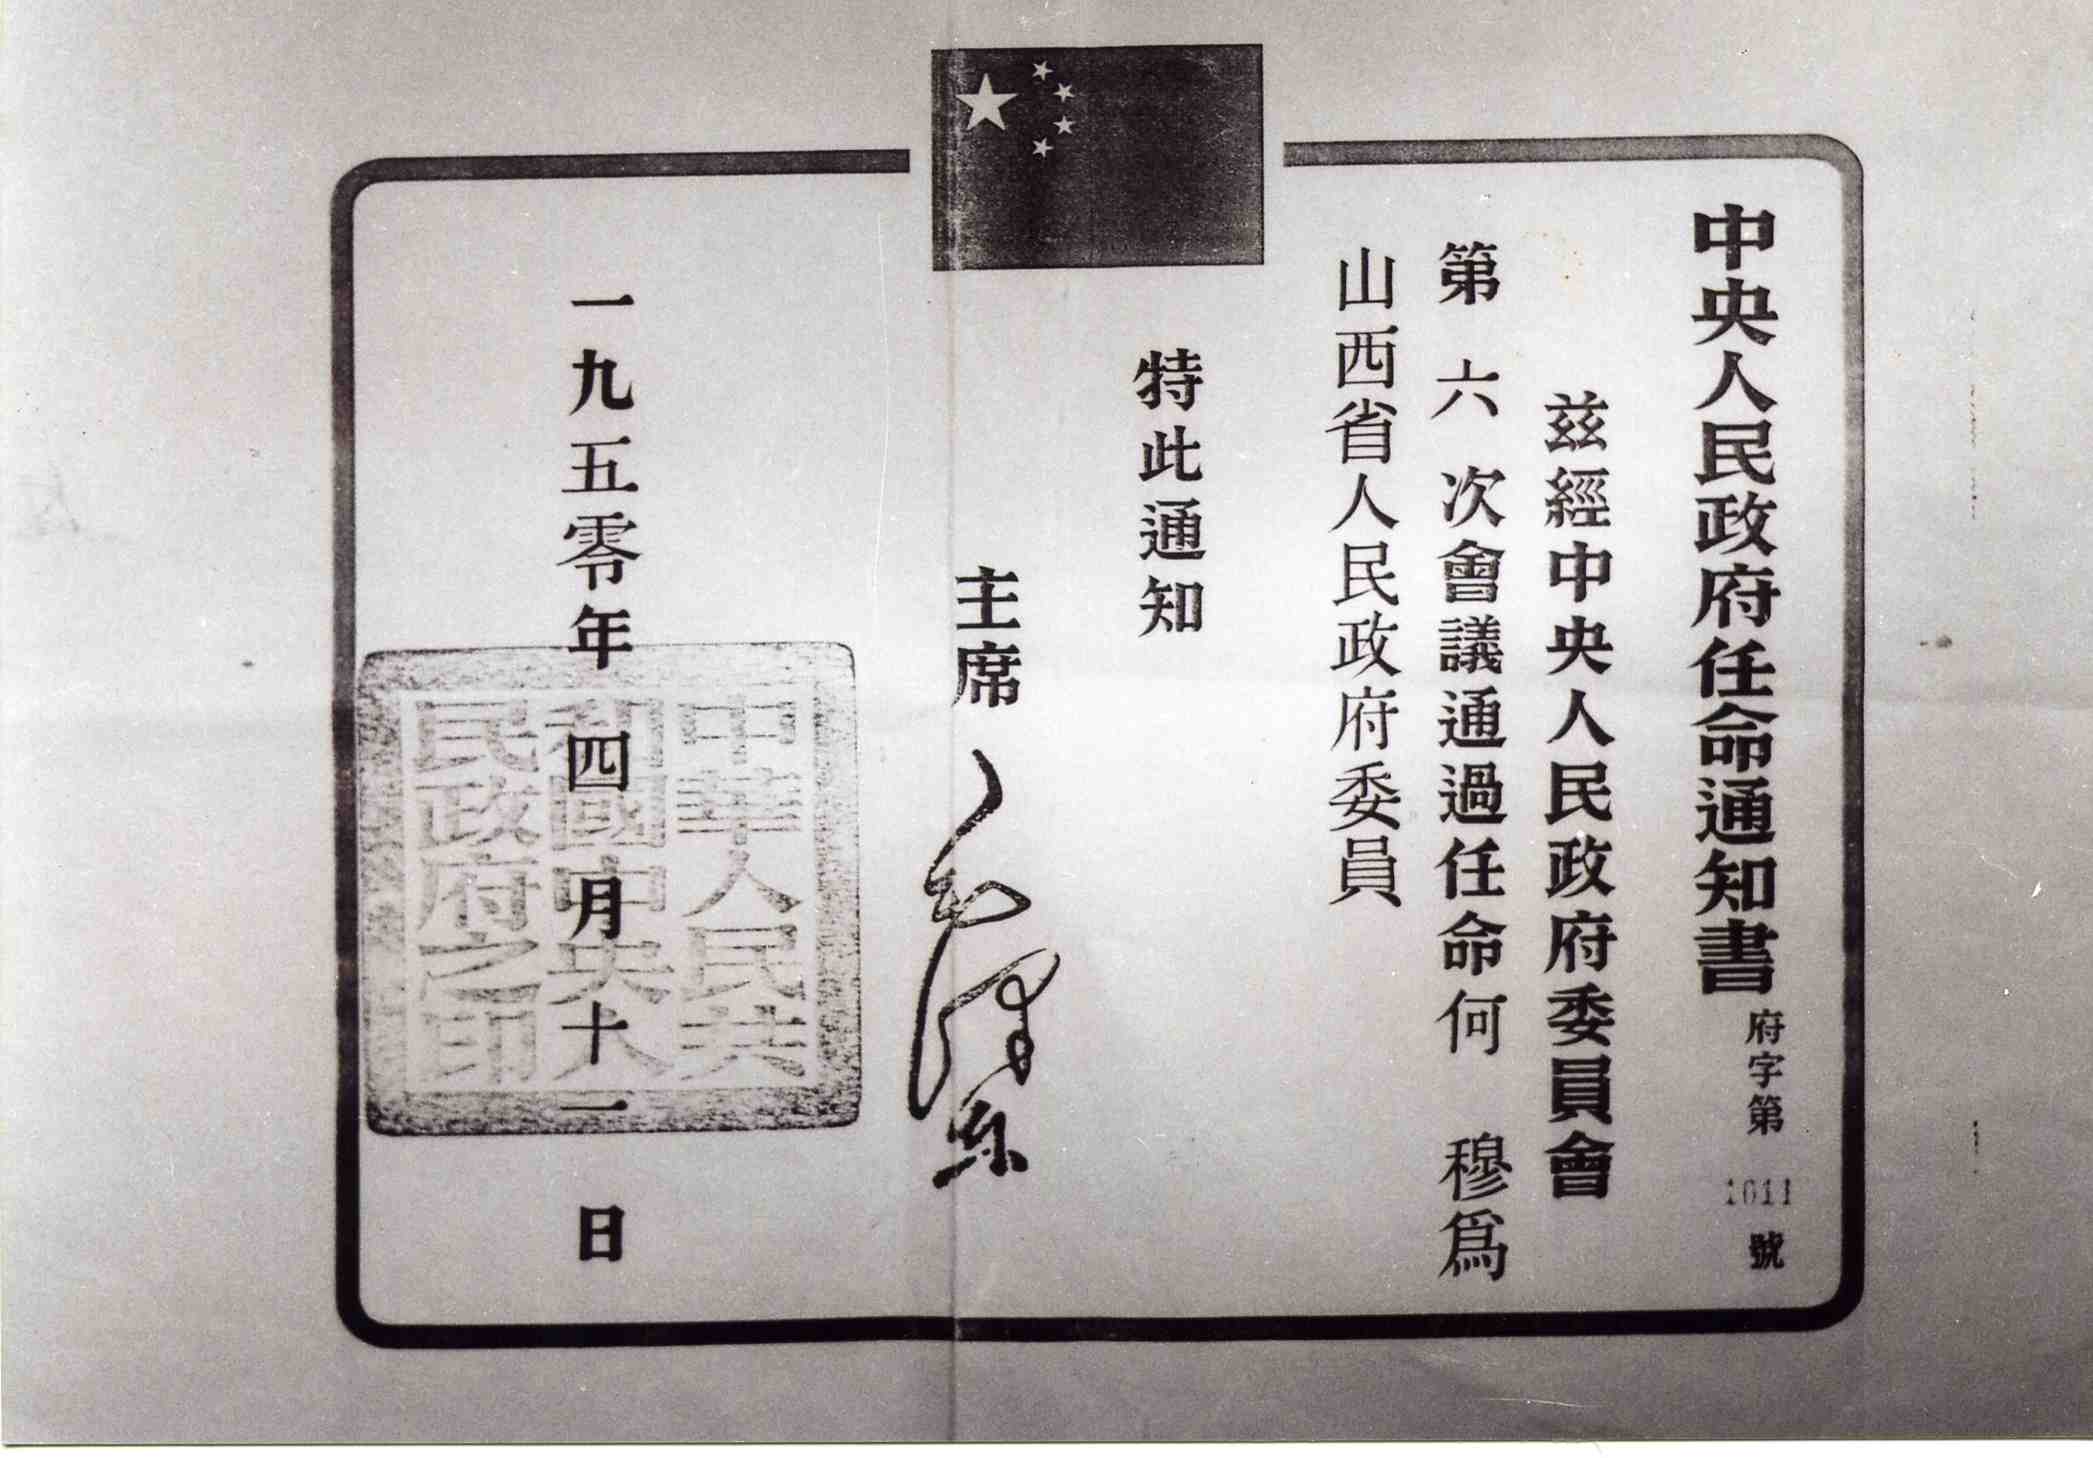 中央人民政府任命通知書
府字第1011號
茲經中央人民政府委員會
第六次會議通過任命何 穆爲
山西省人民政府委員
特此通知
主席 毛澤東
一九五零年四月十一日
中華人民共
和國中央人
民政府之印